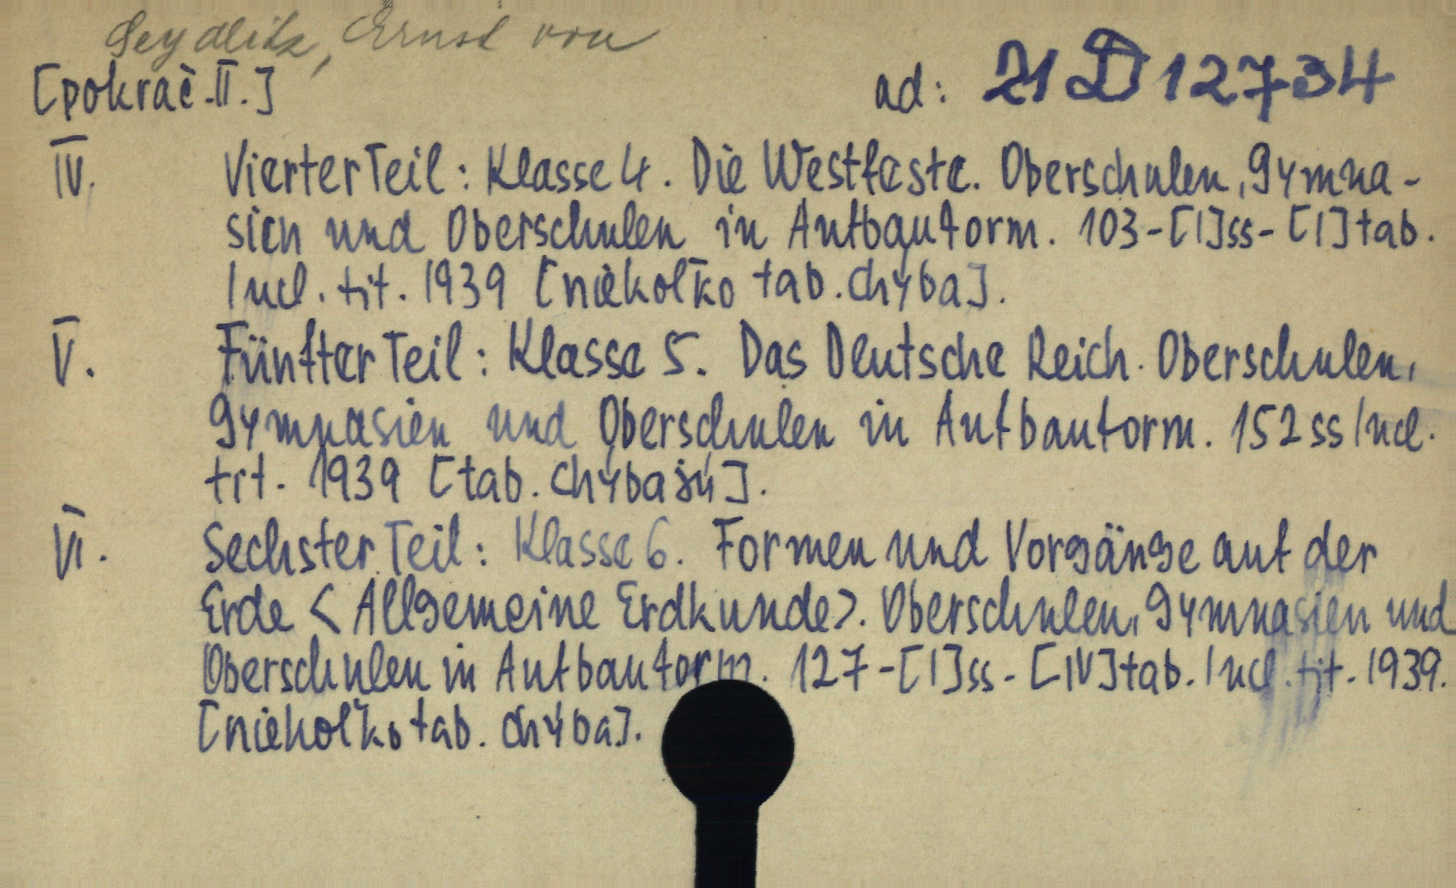 Seydlitz, Ernst von
[pokrač. II.] ad: 21 D 12734
IV. Vierter Teil: Klasse 4. Die Westfeste. Oberschulen, Gymna-
sien und Oberschulen in Aufbauform. 103-[I]ss-[I]tab.
Incl. tit. 1939 [niekoľko tab. chýba].
V. Fünfter Teil: Klasse 5. Das Deutsche Reich. Oberschulen,
Gymnasien und Oberschulen in Aufbauform. 152 ss Incl.
tit. 1939 [tab. chýbajú].
VI. Sechster Teil: Klasse 6. Formen und Vorgänge auf der
Erde <Allgemeine Erdkunde>. Oberschulen, Gymnasien und
Oberschulen in Aufbauform. 127-[I]ss-[IV]tab. Incl. tit. 1939.
[niekoľko tab. chýba].